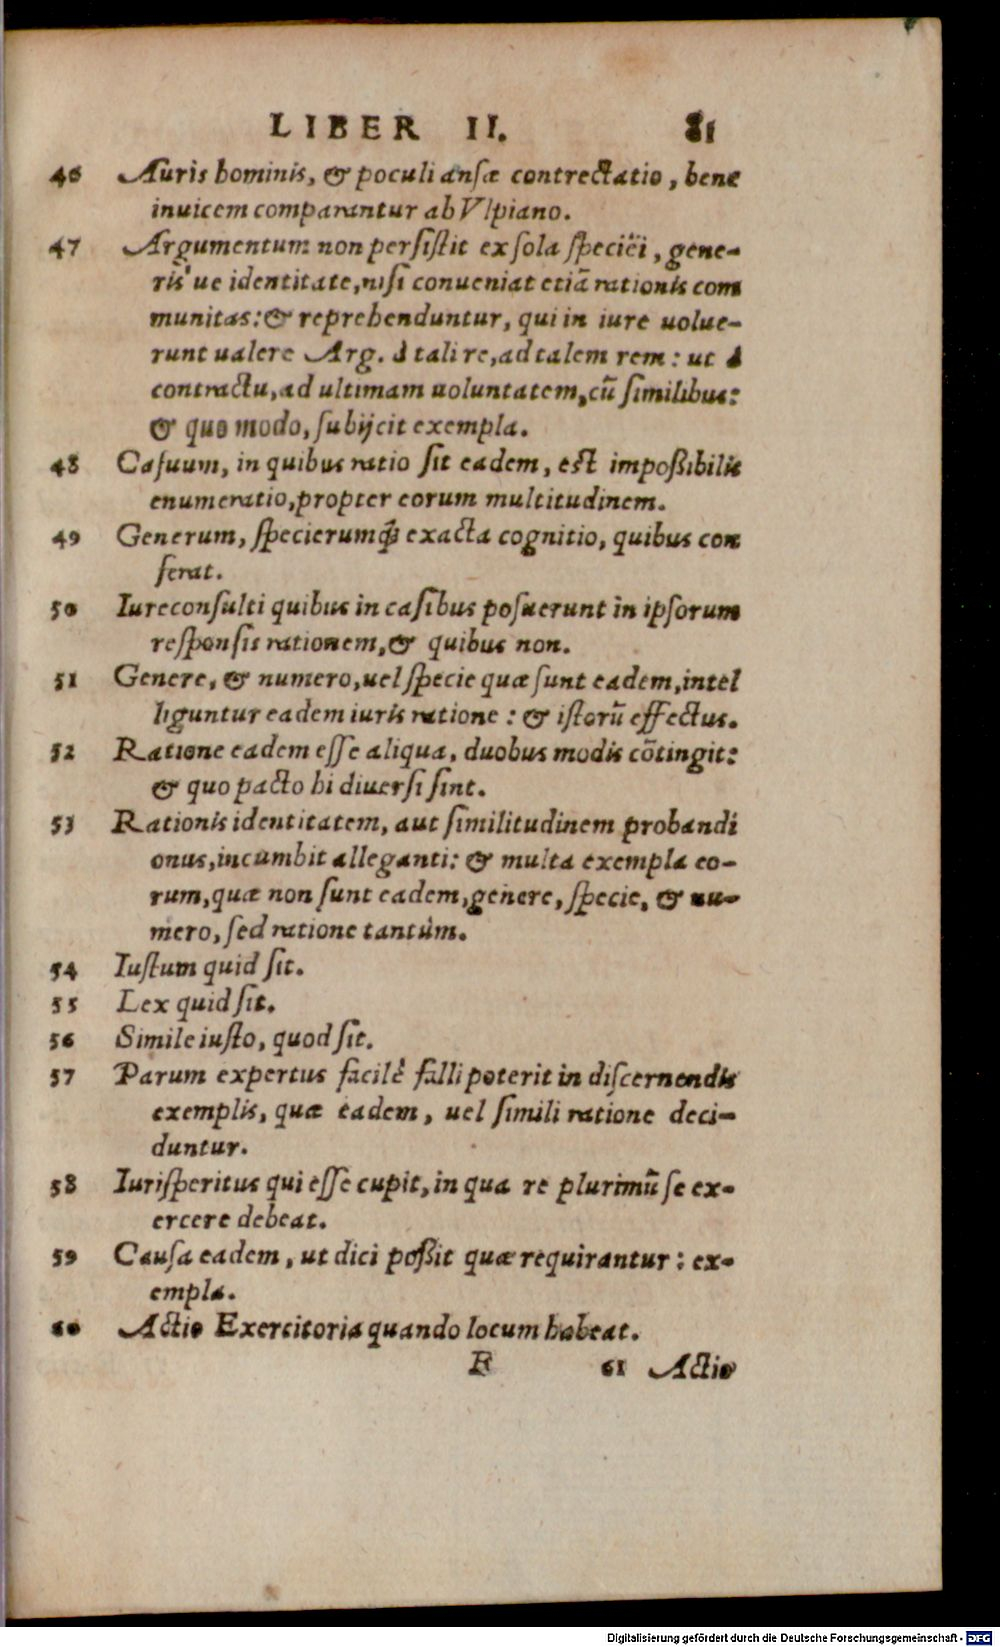 LIBER II. 81
46 Auris hominis, & poculi ansæ contrectatio, bene
inuicem comparantur ab Vlpiano.
47 Argumentum non persistit ex sola speciei, gene-
ris´ue identitate, nisi conueniat etiã rationis com
munitas: & reprehenduntur, qui in iure uolue-
runt ualere Arg. à tali re, ad talem rem: ut à
contractu, ad ultimam uoluntatem, cũ similibus:
& quo modo, subijcit exempla.
48 Casuum, in quibus ratio sit eadem, est impoßibilis
enumeratio, propter eorum multitudinem.
49 Generum, specierumq́; exacta cognitio, quibus con
ferat.
50 Iureconsulti quibus in casibus posuerunt in ipsorum
responsis rationem, & quibus non.
51 Genere, & numero, uel specie quæ sunt eadem, intel
liguntur eadem iuris ratione: & istorũ effectus.
52 Ratione eadem esse aliqua, duobus modis cõtingit:
& quo pacto hi diuersi sint.
53 Rationis identitatem, aut similitudinem probandi
onus, incumbit alleganti: & multa exempla eo-
rum, quæ non sunt eadem, genere, specie, & nu-
mero, sed ratione tantùm.
54 Iustum quid sit.
55 Lex quid sit.
56 Simile iusto, quod sit.
57 Parum expertus facilè falli poterit in discernendis
exemplis, quæ eadem, uel simili ratione deci-
duntur.
58 Iurisperitus qui esse cupit, in qua re plurimũ se ex-
ercere debeat.
59 Causa eadem, ut dici poßit quæ requirantur: ex-
empla.
60 Actio Exercitoria quando locum habeat.
F 61 Actio
Digitalisierung gefördert durch die Deutsche Forschungsgemeinschaft - DFG